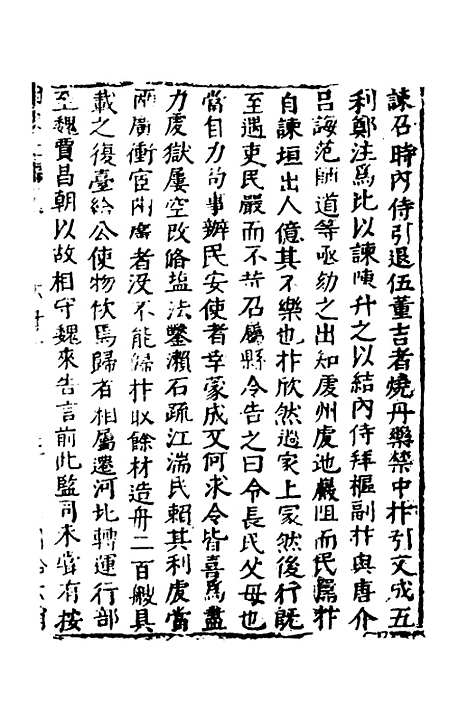 諫召時內侍引退伍董吉者燒丹藥禁中抃引文成五
利鄭注爲比以諫陳升之以結內侍拜樞副抃與唐介
呂誨范師道等亟劾之出知虔州虔地嚴阻而民驁抃
自諫垣出人億其不樂也抃欣然過家上冢然後行旣
至遇吏民嚴而不苛召屬縣令告之曰令長民父母也
當自力向事辦民安使者幸蒙成又何求令皆喜爲盡
力虔獄屢空改略塩法鑿瀨石疏江湍民賴其利虔當
兩廣衝宦兩廣者沒不能歸抃收餘材造舟二百艘具
載之復臺給公使物俠爲歸者相屬遷河北轉運行部
至魏賈昌朝以故相守魏來告言前此監司未嘗有按